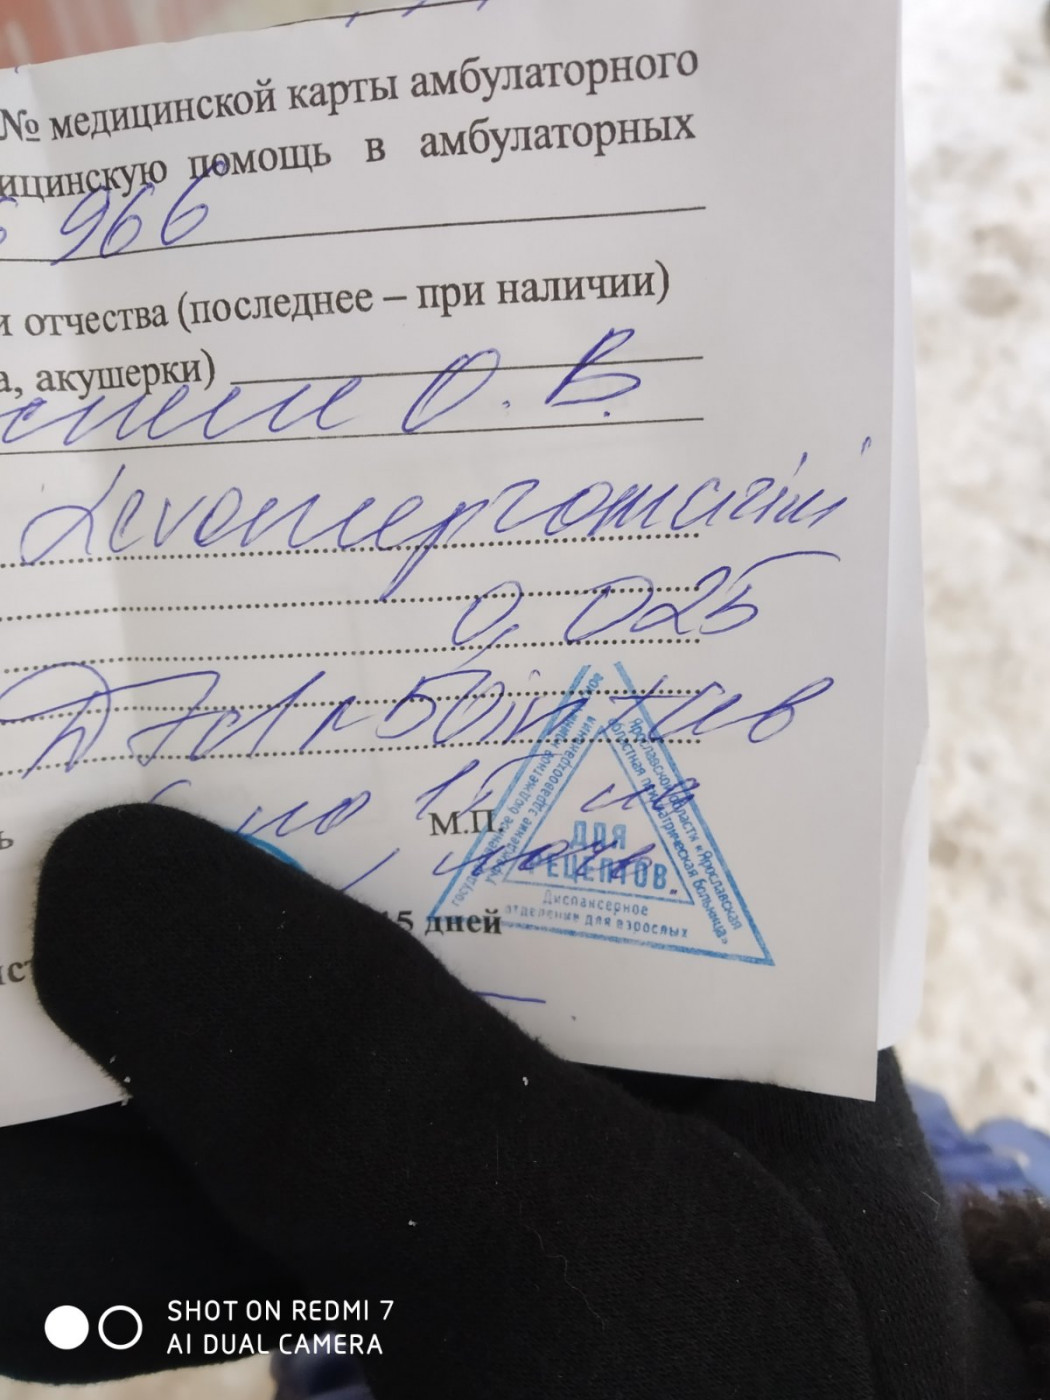 № медицинской карты амбулаторного
ицинскую помощь в амбулаторных
966
и отчества (последнее – при наличии)
а, акушерки)
О. В.
Levomepromazini
0,025
М.П.
по 1т на
ночь
15 дней
государственное бюджетное
учреждение здравоохранения
Ярославской области «Ярославская
областная психиатрическая больница»
ДЛЯ
РЕЦЕПТОВ
Диспансерное
отделение для взрослых
SHOT ON REDMI 7
AI DUAL CAMERA